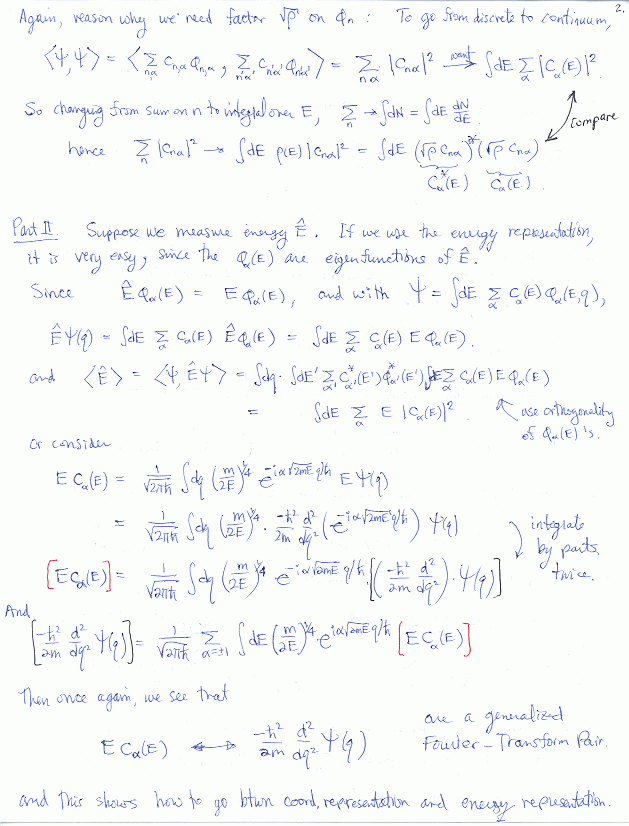 2.
Again, reason why we need factor √ρ on φₙ : To go from discrete to continuum,
⟨Ψ,Ψ⟩ = ⟨ Σ_{nα} C_{n,α} φ_{n,α} , Σ_{n'α'} C_{n'α'} φ_{n'α'} ⟩ = Σ_{nα} |C_{nα}|² →(want) ∫dE Σ_α |C_α(E)|²
So changing from sum on n to integral over E, Σ_n → ∫dN = ∫dE dN/dE
compare
hence Σ_n |C_{nα}|² → ∫dE ρ(E) |C_{nα}|² = ∫dE (√ρ C_{nα})* (√ρ C_{nα})
C_α*(E) C_α(E).
Part II. Suppose we measure energy Ê. If we use the energy representation,
it is very easy, since the φ_α(E) are eigenfunctions of Ê.
Since Ê φ_α(E) = E φ_α(E), and with Ψ = ∫dE Σ_α C_α(E) φ_α(E,q),
Ê Ψ(q) = ∫dE Σ_α C_α(E) Ê φ_α(E) = ∫dE Σ_α C_α(E) E φ_α(E).
and ⟨Ê⟩ = ⟨Ψ, ÊΨ⟩ = ∫dq · ∫dE' Σ_{α'} C*_{α'}(E') φ*_{α'}(E') ∫dE Σ_α C_α(E) E φ_α(E)
= ∫dE Σ_α E |C_α(E)|² use orthogonality
of φ_α(E)'s.
Or consider
E C_α(E) = 1/√(2πħ) ∫dq (m/2E)^{1/4} e^{-iα√(2mE) q/ħ} E Ψ(q)
= 1/√(2πħ) ∫dq (m/2E)^{1/4} · -ħ²/2m d²/dq² (e^{-iα√(2mE) q/ħ}) Ψ(q)
integrate
by parts
twice.
[E C_α(E)] = 1/√(2πħ) ∫dq (m/2E)^{1/4} e^{-iα√(2mE) q/ħ} [(-ħ²/2m d²/dq²) · Ψ(q)]
And
[-ħ²/2m d²/dq² Ψ(q)] = 1/√(2πħ) Σ_{α=±1} ∫dE (m/2E)^{1/4} e^{iα√(2mE) q/ħ} [E C_α(E)]
Then once again, we see that
E C_α(E) ↔ -ħ²/2m d²/dq² Ψ(q) are a generalized
Fourier-Transform Pair.
and this shows how to go btwn coord. representation and energy representation.